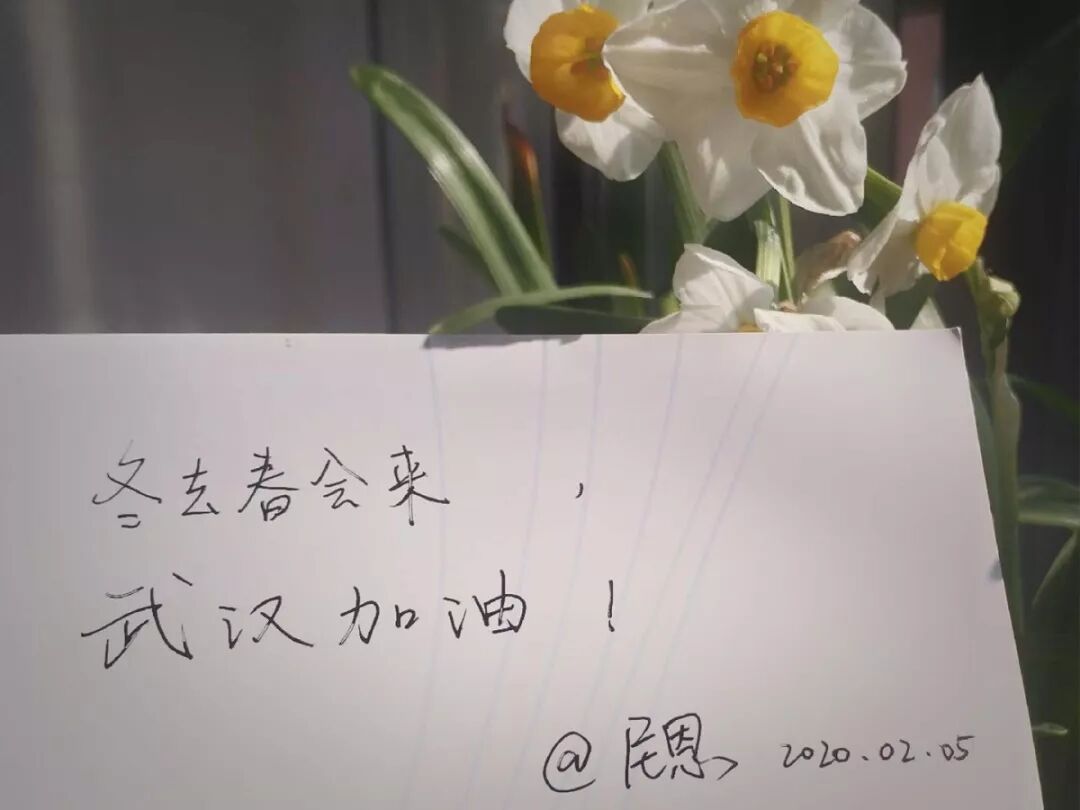 冬去春会来，
武汉加油！
@尾恩 2020.02.05